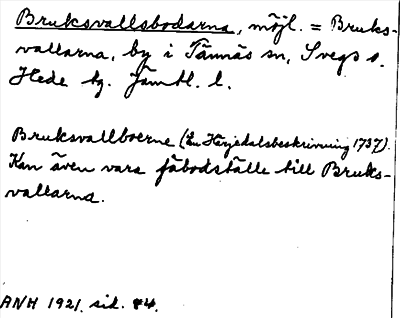 Bruksvallsbodarna, möjl. = Bruks-
vallarna, by i Tännäs sn, Svegs o.
Hede tg. Jämtl. l.
Bruksvallboerne (En Härjedalsbeskrivning 1737).
Kan även vara fäbodställe till Bruks-
vallarna.
ANH 1921. sid. 84.